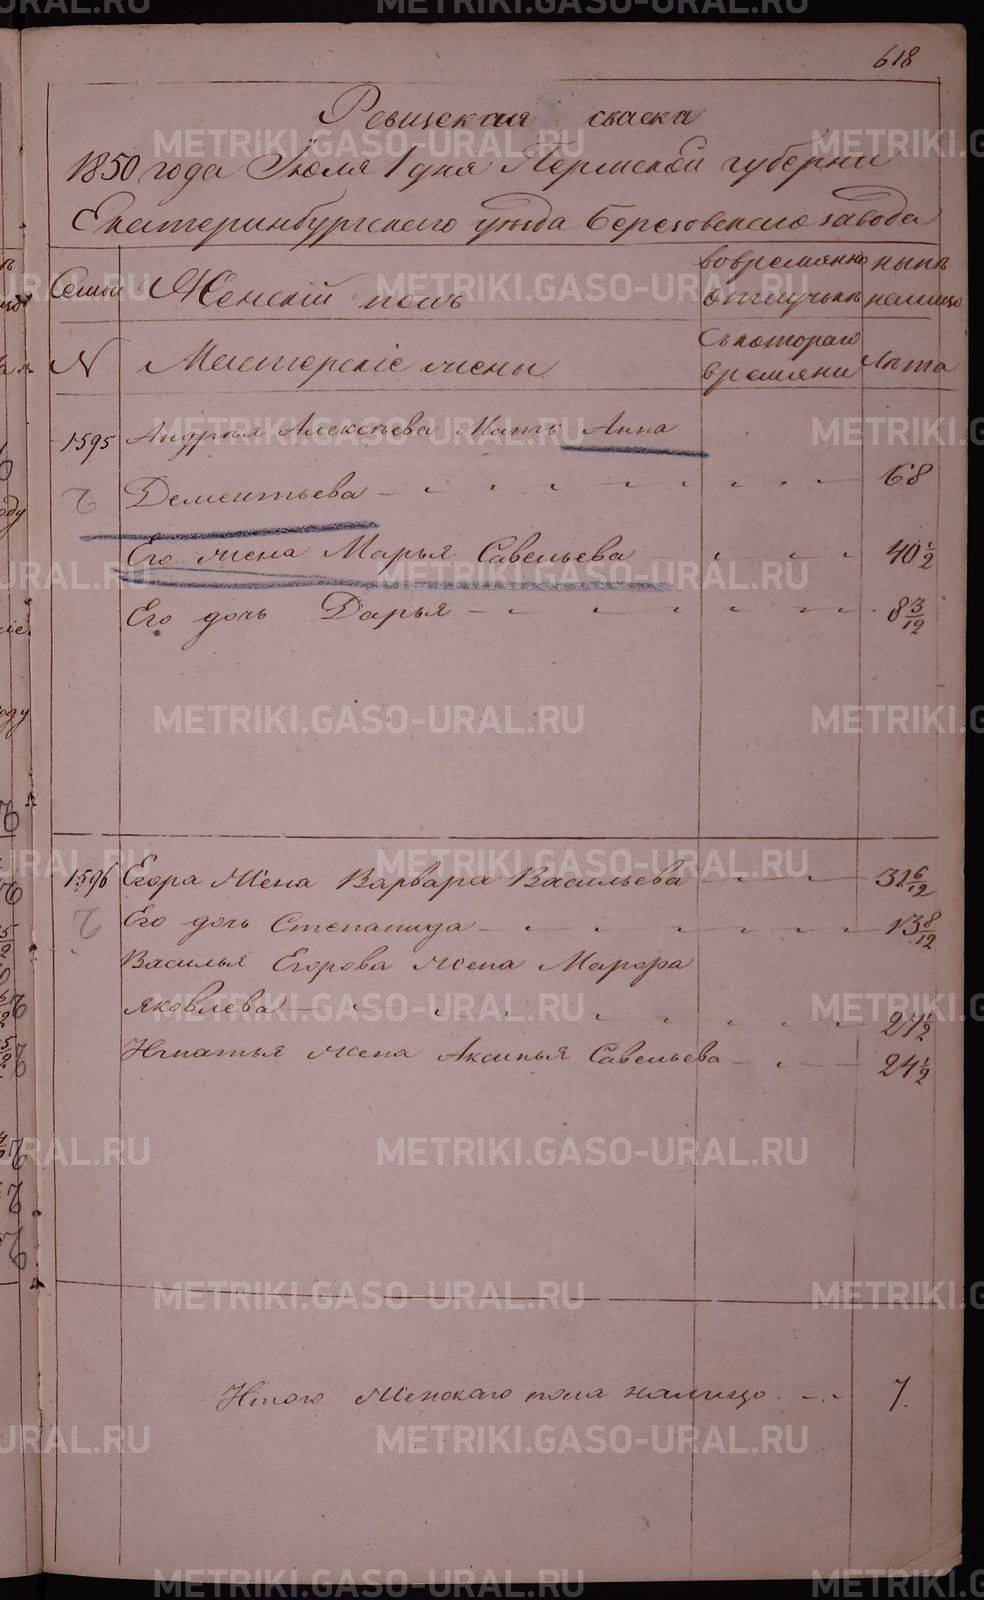 618
Ревижская сказка
1850 года Июля 1 дня Пермской губерни
Екатеринбургскаго уѣзда Березовскаго завода
Семьи Женскій полъ вовременно ныне
отлучькѣ налицо
N Мастерскіе жены Съкотораго Лѣта
времяни
1595 Андрея Алексѣева Мать Анна
Дементьева 68
Его жена Марья Савельева 40 1/2
Его дочь Дарья 8 3/12
1596 Егора Жена Варвара Васильева 31 6/12
Его дочь Степанида 13 8/12
Василья Егорова жена Марфа
Яковлева 27 1/2
Игнатья жена Аксинья Савельева 24 1/2
Итого Женскаго пола налицо 7.
METRIKI.GASO-URAL.RU